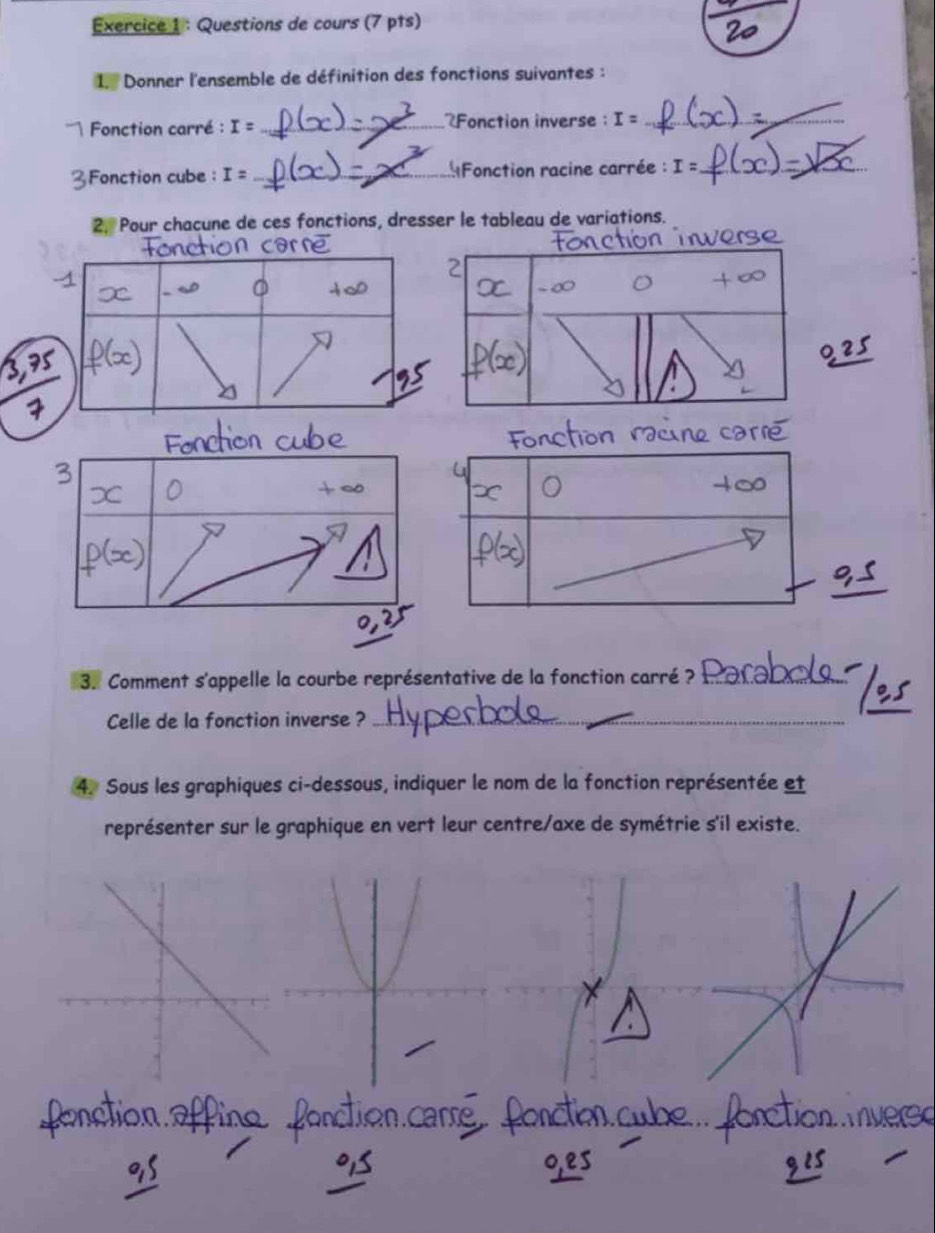 20
Exercice 1 : Questions de cours (7 pts)
1. Donner l'ensemble de définition des fonctions suivantes :
1 Fonction carré : I = f(x) = x² 2 Fonction inverse : I = f(x) =
3 Fonction cube : I = f(x) = x³ 4 Fonction racine carrée : I = f(x) = √x
2. Pour chacune de ces fonctions, dresser le tableau de variations.
Fonction carré Fonction inverse
1 x -∞ 0 +∞ 2 x -∞ 0 +∞
3,75/7 f(x) 0,5 f(x) ! 0,25
Fonction cube Fonction racine carré
3 x 0 +∞ 4 x 0 +∞
f(x) ! f(x) 0,5
0,25
3. Comment s'appelle la courbe représentative de la fonction carré ? Parabole
Celle de la fonction inverse ? Hyperbole 0,5
4. Sous les graphiques ci-dessous, indiquer le nom de la fonction représentée et
représenter sur le graphique en vert leur centre/axe de symétrie s'il existe.
!
fonction affine fonction carré fonction cube fonction inverse
0,5 0,5 0,25 0,25